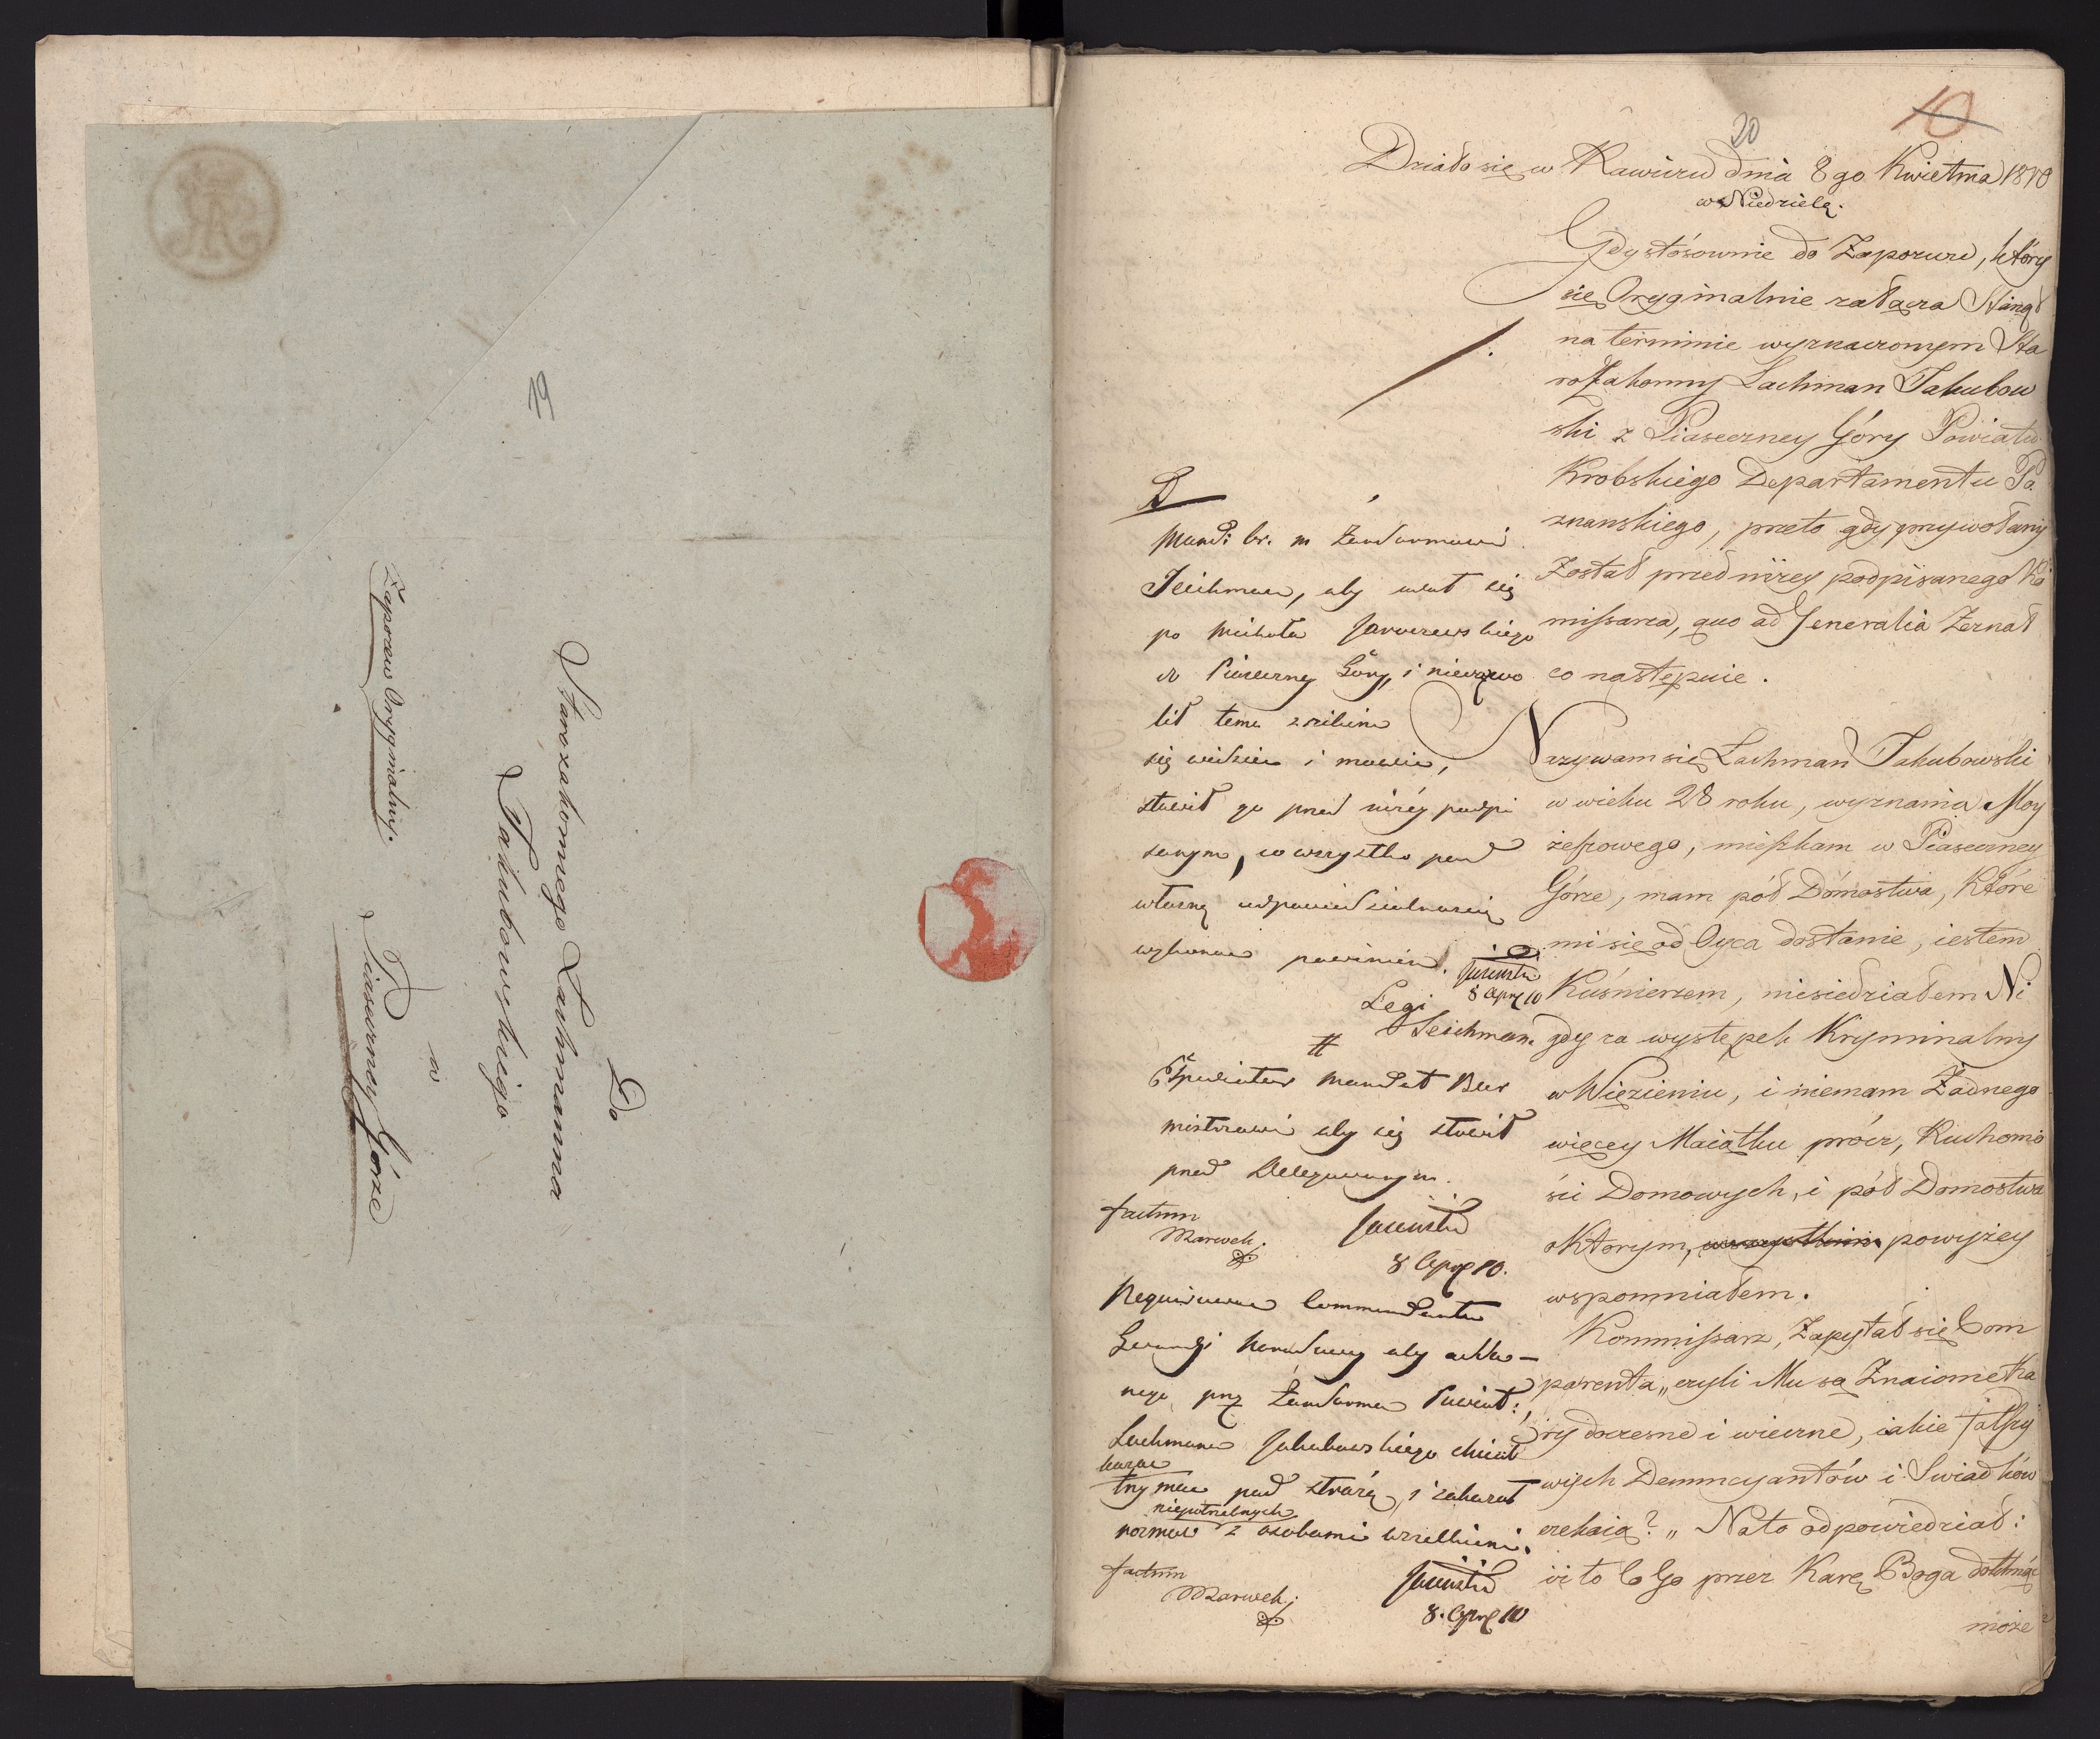 Do
Starozakonnego Lachmanna
Jakubowskiego
w
Piaseczney Górze
Zapozew Oryginalny.
10
20
Działo się w Rawiczu dnia 8go Kwietnia 1810
w Niedzielę.
Gdy stósownie do Zapozwu, który
się Oryginalnie załącza Stanął
na terminie wyznaczonym Sta
rozakonny Lachman Jakubow
ski z Piaseczney Góry Powiatu
Krobskiego Departamentu Po
znanskiego, przeto gdy przywołany
Został przed niżey podpisanego Ko
missarza, quo ad Generalia Zeznał
co następuie.
Nazywam się Lachman Jakubowski
w wieku 28 roku, wyznania Moy
żeszowego, mieszkam w Piaseczney
Górze, mam pół Dómostwa, które
mi się od Oyca dostanie, iestem
Kuśnierzem, niesiedziałem Ni
gdy za występek Kryminalny
w Więzieniu, i niemam Żadnego
więcey Maiątku prócz, Ruchomo
ści Domowych, i pół Domostwa
o Ktorym, powyżey
wspomniałem.
Kommissarz, Zapytał się Com
parenta „czyli Mu są Znaiome Ka
ry doczesne i wieczne, iakie fałszy
wych Denuncyantów i Swiadków
czekaią? „ Na to odpowiedział:
iż to Co Go przez Karę Boga dotknąć
może
D
Mand: br. m Żandarmowi
Teichman, aby udał się
po Michała Jaroczewskiego
do Piaseczny Góry, i niedozwo
lił temu z nikim
się widzieć i mowić,
stawił go przed niżéy podpi
sanym, co wszystko pod
własną odpowiedzialnoscią
wykonać powinien.
8 Apr 10
Legi
Teichman
#
Mandat Bur
mistrzowi aby się stawił
przed Delegowanym.
factum
Marwek.
8 Apr 10.
Requisicya Commendanta
Gwardyi Narodowey aby
nego prz Żandarma Powiat:,
Lachmana Jakubowskiego chciał
kazać
trzymać pod strażą, i zakazał
niepotrzebnych
rozmów z osobami wszelkiemi.
factum
Marwek.
8. Apr 10